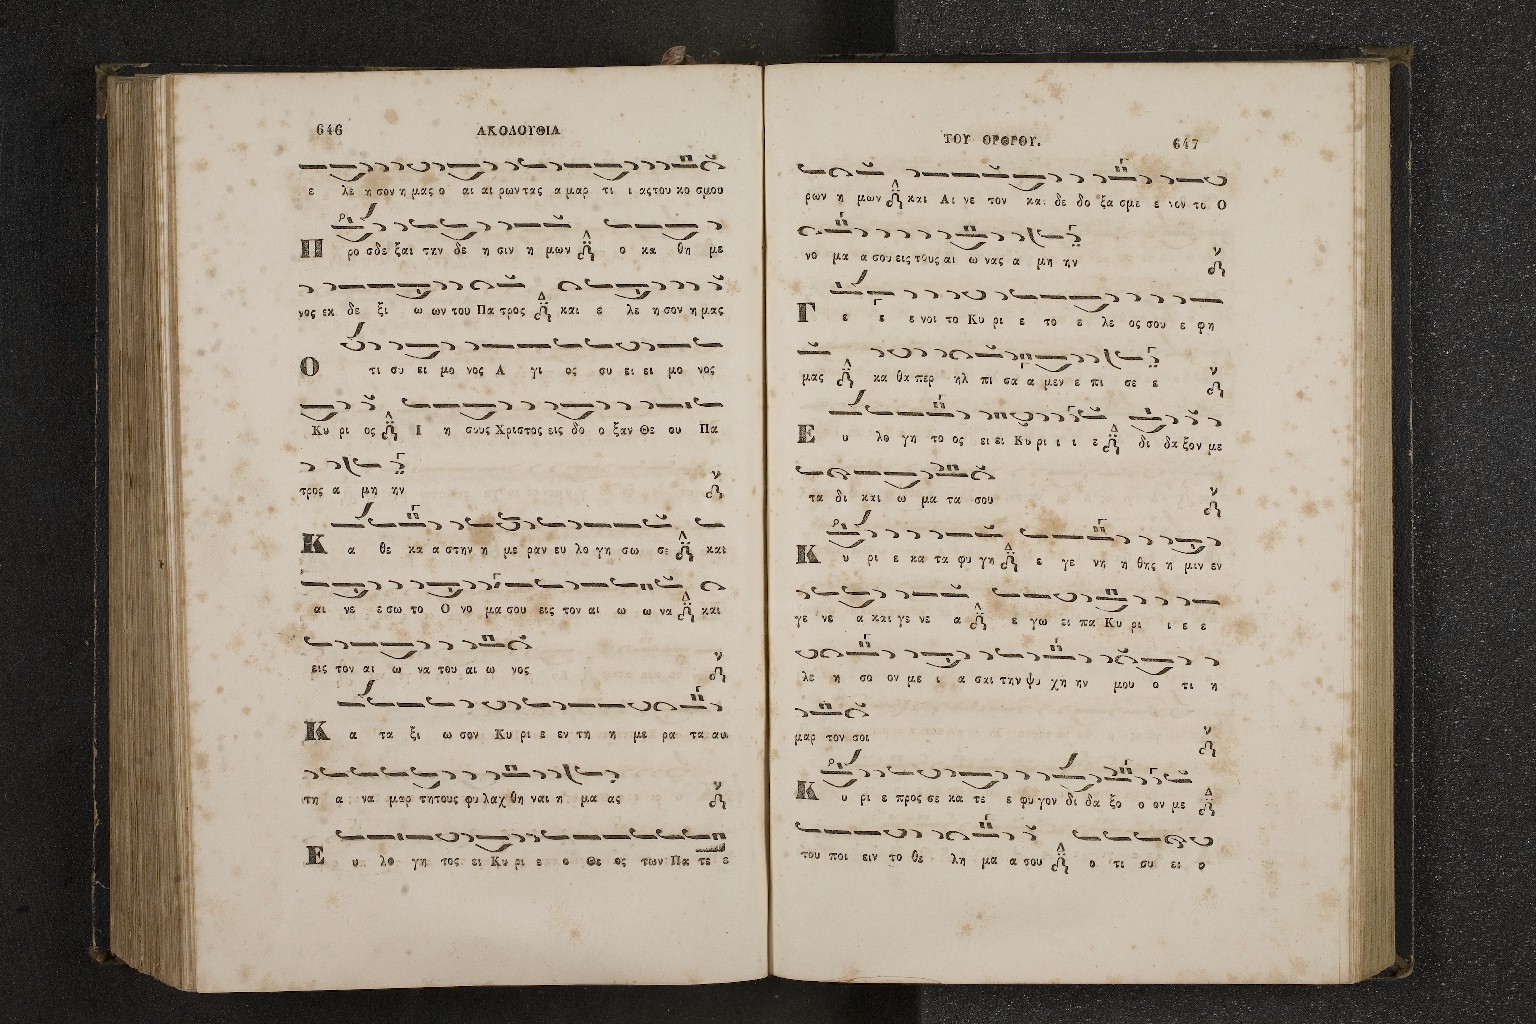 646 ΑΚΟΛΟΥΘΙΑ
ε λε η σον η μας ο αι αι ρων τας α μαρ τι ι ας του κο σμου
Π ρο σδε ξαι την δε η σιν η μων ο κα θη με
νος εκ δε ξι ω ων του Πα τρος και ε λε η σον η μας
Ο τι συ ει μο νος Α γι ος συ ει ει μο νος
Κυ ρι ος Ι η σους Χριστος εις δο ο ξαν Θε ου Πα
τρος α μη ην
Κ α θε κα α στην η με ραν ευ λο γη σω σε και
αι νε ε σω το Ο νο μα σου εις τον αι ω ω να και
εις τον αι ω να του αι ω νος
Κ α τα ξι ω σον Κυ ρι ε εν τη η με ρα τα αυ
τη α να μαρ τητους φυ λαχ θη ναι η μα ας
Ε υ λο γη τος ει Κυ ρι ε ο Θε ος των Πα τε ε
ΤΟΥ ΟΡΘΡΟΥ. 647
ρων η μων και Αι νε τον και δε δο ξα σμε ε νον το Ο
νο μα α σου εις τους αι ω νας α μη ην
Γ ε ε ε νοι το Κυ ρι ε το ε λε ος σου ε φη
μας κα θα περ ηλ πι σα α μεν ε πι σε ε
Ε υ λο γη το ος ει ει Κυ ρι ι ι ε δι δα ξον με
τα δι και ω μα τα σου
Κ υ ρι ε κα τα φυ γη ε γε νη η θης η μιν εν
γε νε α και γε νε α ε γω ει πα Κυ ρι ι ε ε
λε η σο ον με ι α σαι την ψυ χη ην μου ο τι η
μαρ τον σοι
Κ υ ρι ε προς σε κα τε ε φυ γον δι δα ξο ο ον με
του ποι ειν το θε λη μα α σου ο τι συ ει ο